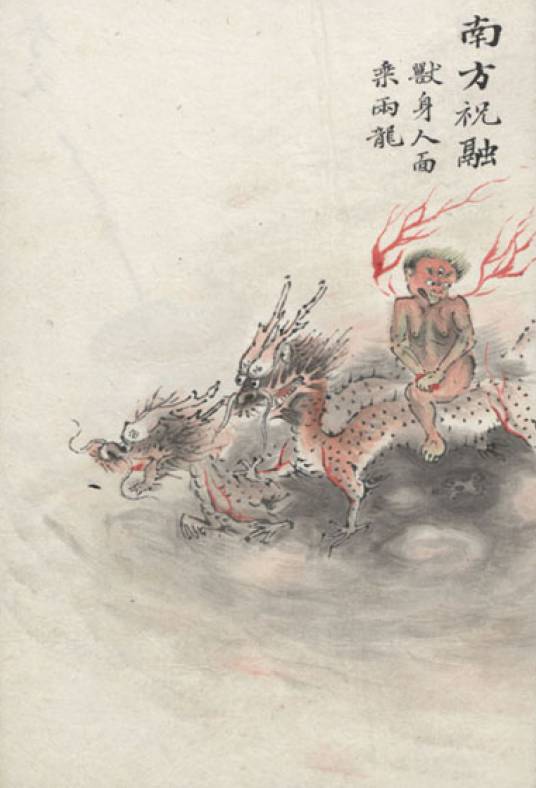 南方祝融
獸身人面
乘兩龍